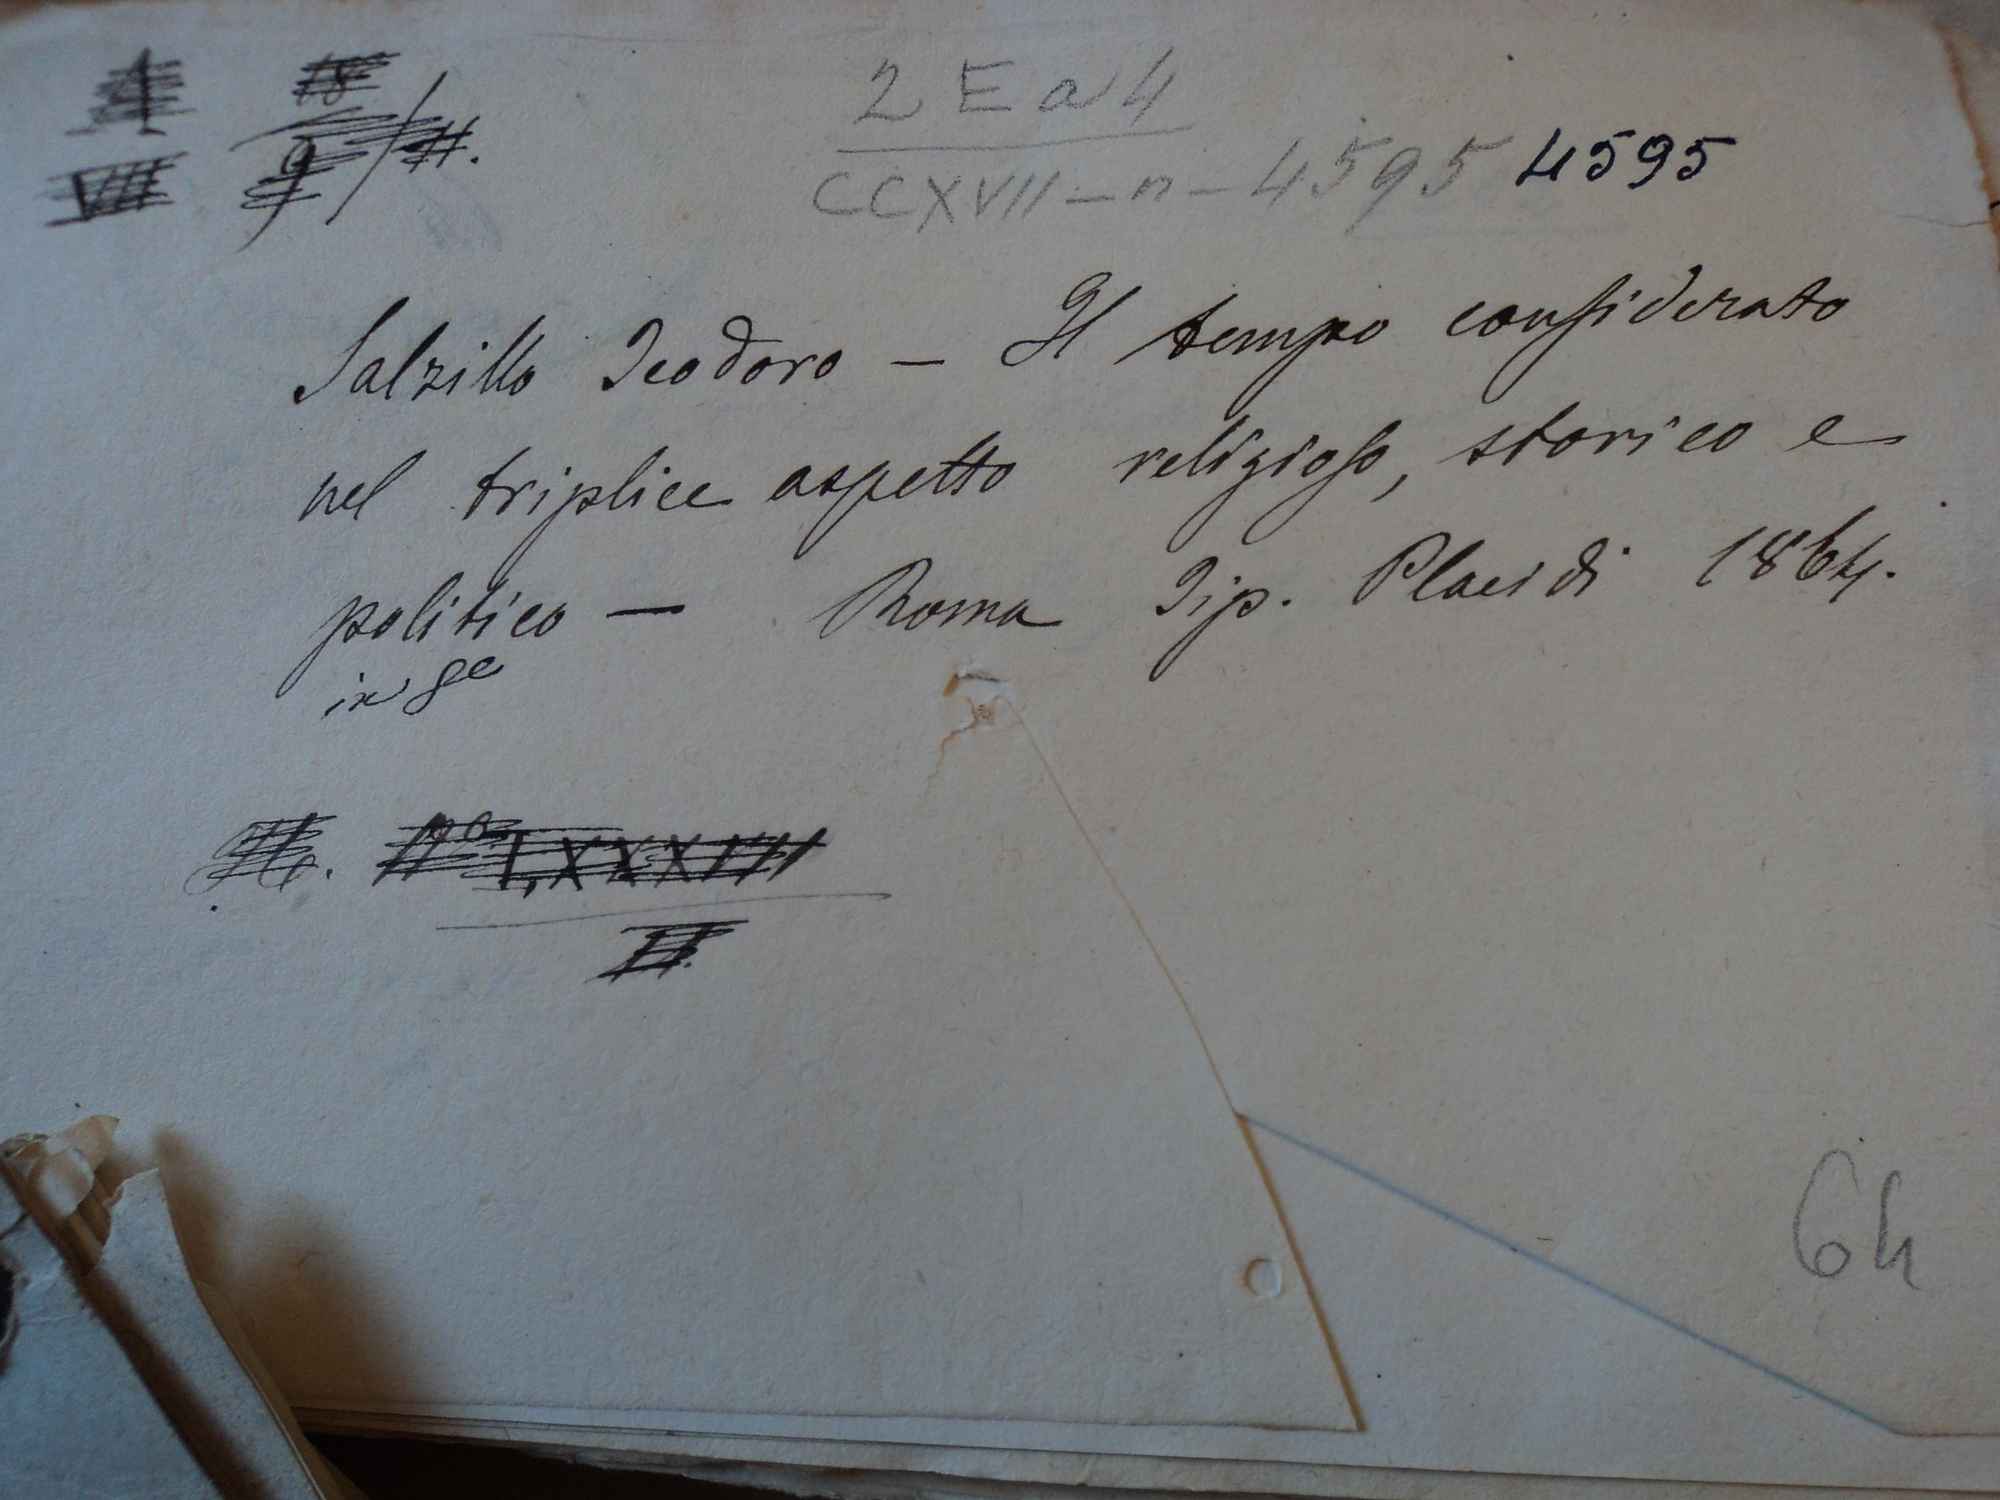 1 18
VII 9 / H.
2 E a 4
CCXVII - n - 4595 4595
Salzillo Teodoro — Il tempo considerato
nel triplice aspetto religioso, storico e
politico — Roma Tip. Placidi 1864.
in 8º
nº LXXXVIII
II.
64